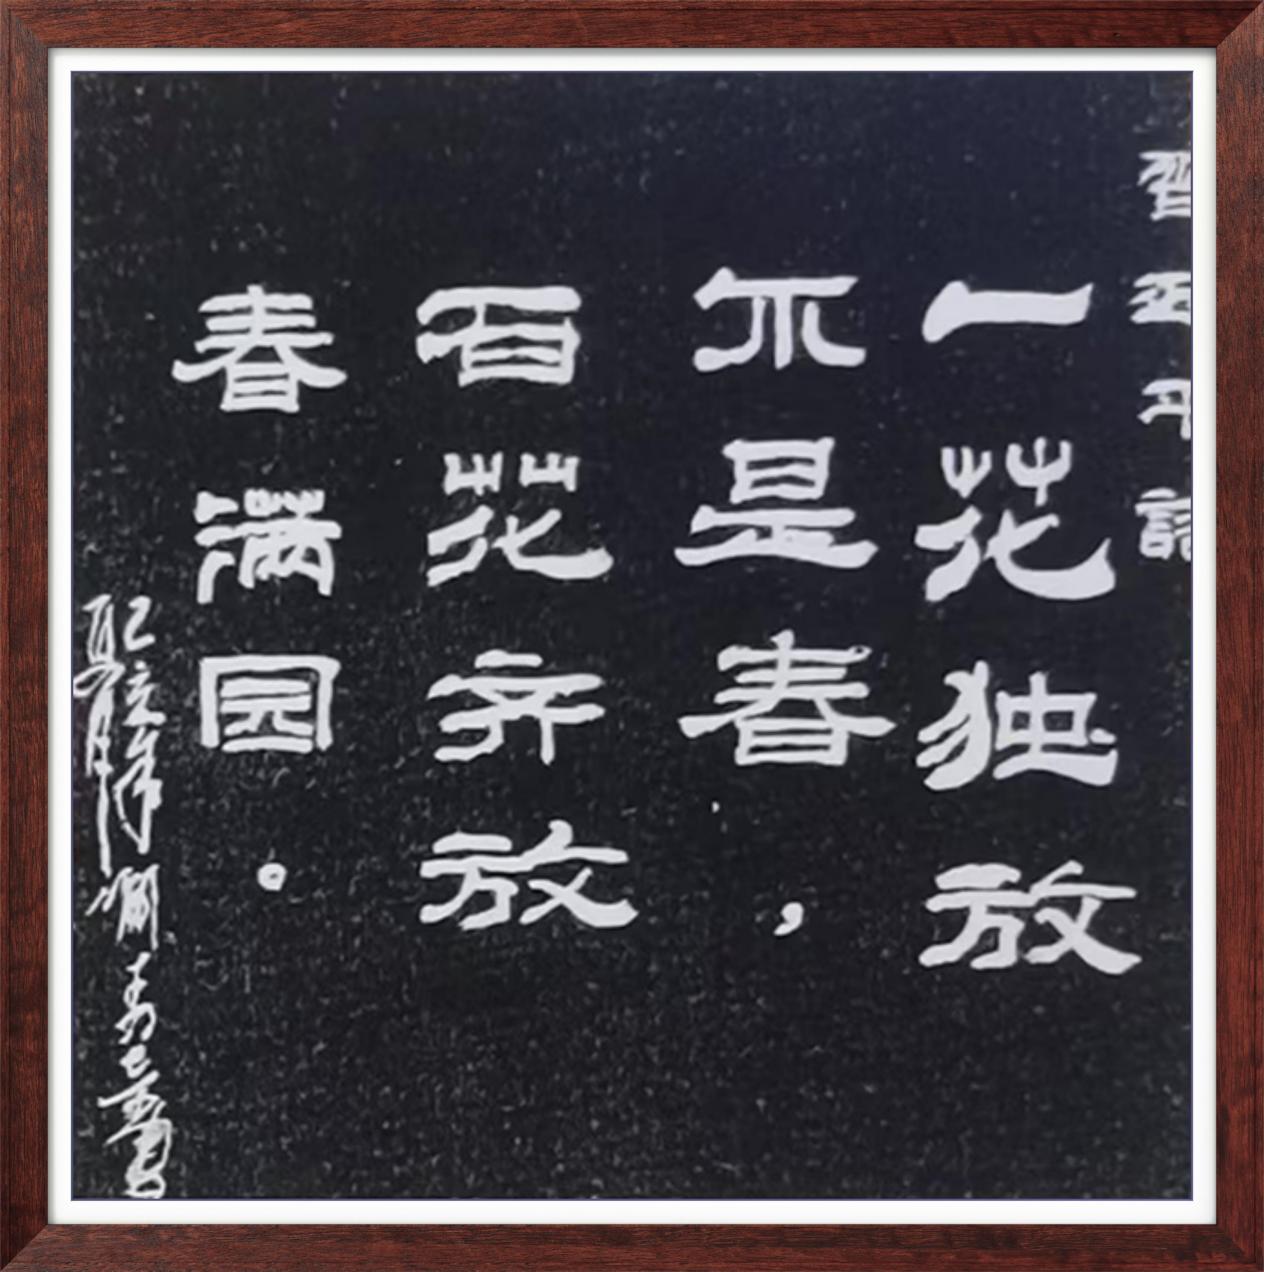 习近平說
一花独放
不是春，
百花齐放
春满园。